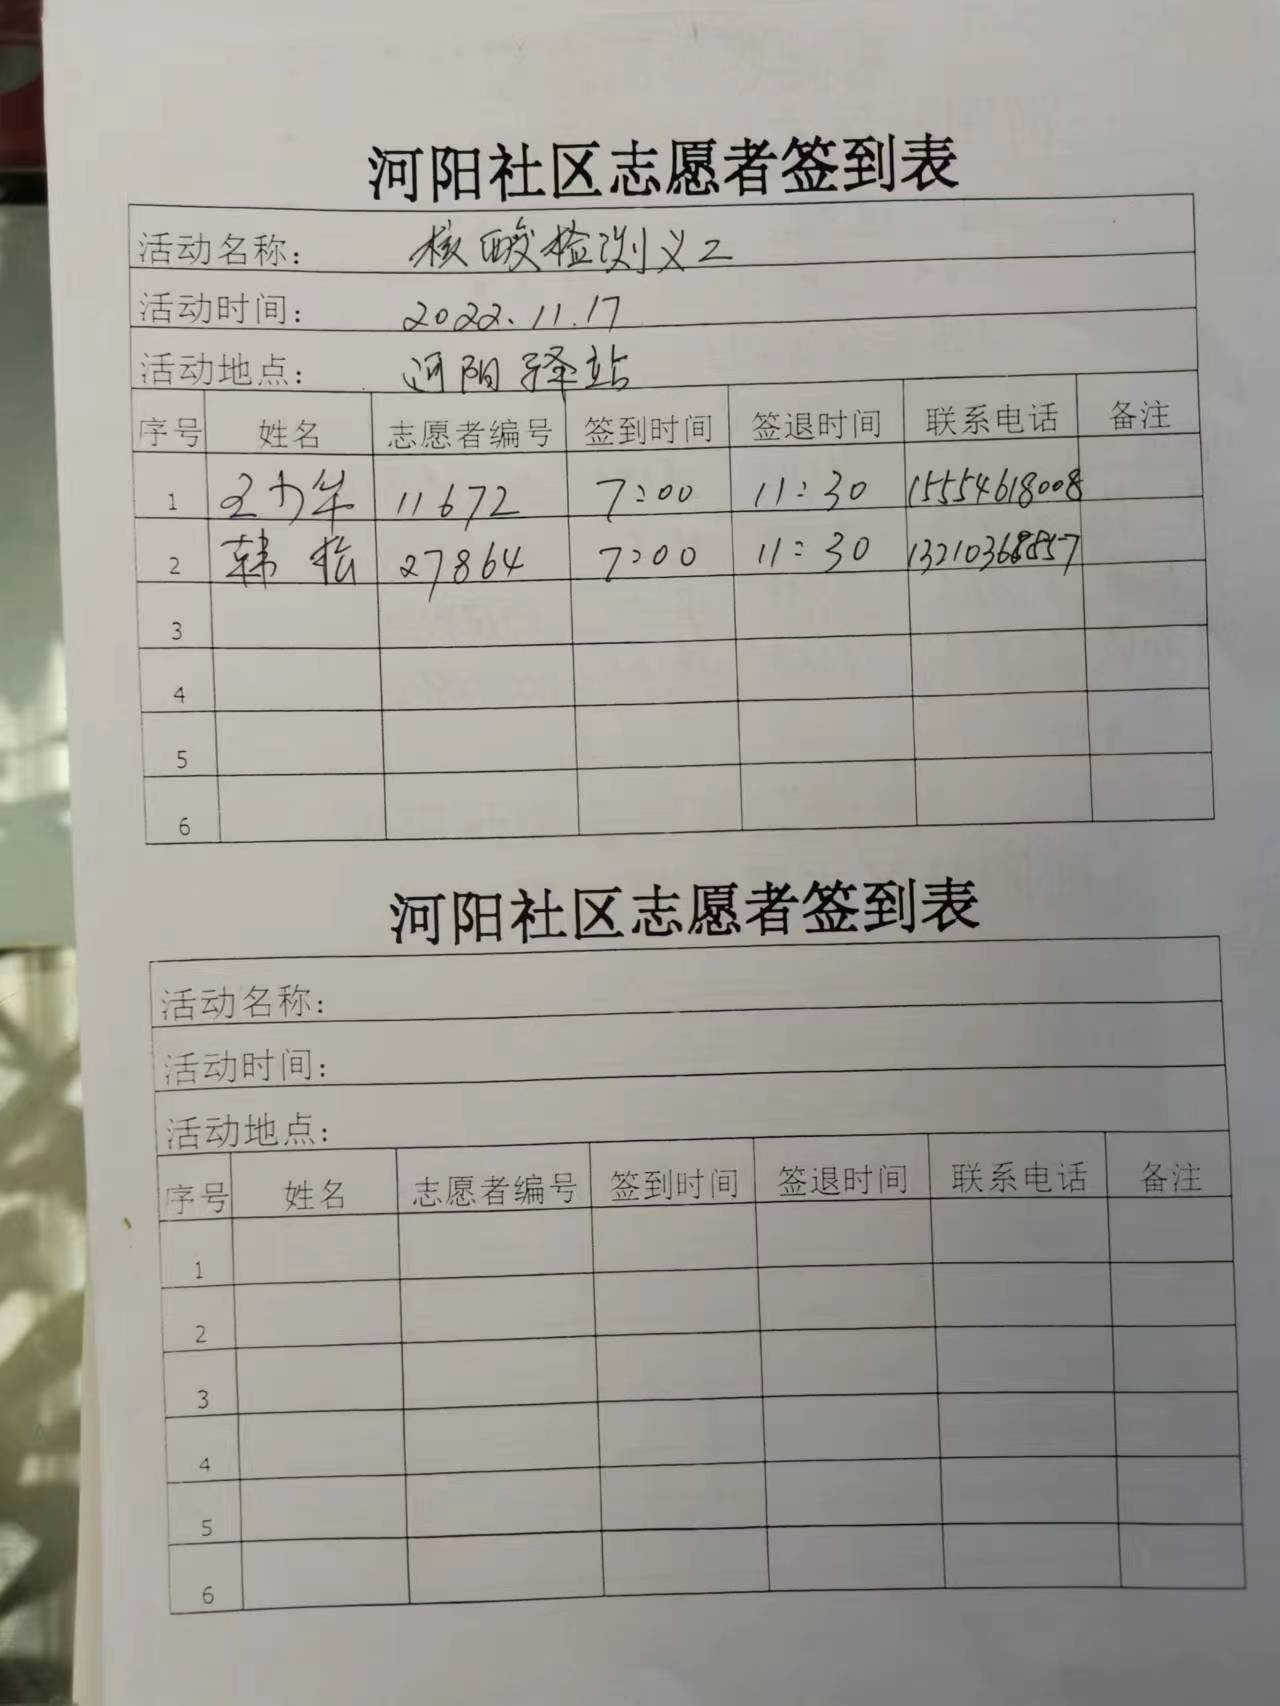 河阳社区志愿者签到表
活动名称： 核酸检测义工
活动时间： 2022.11.17
活动地点： 河阳驿站
序号 姓名 志愿者编号 签到时间 签退时间 联系电话 备注
1 11672 7:00 11:30 15554618008
2 韩松 27864 7:00 11:30 13210368857
3
4
5
6
河阳社区志愿者签到表
活动名称：
活动时间：
活动地点：
序号 姓名 志愿者编号 签到时间 签退时间 联系电话 备注
1
2
3
4
5
6